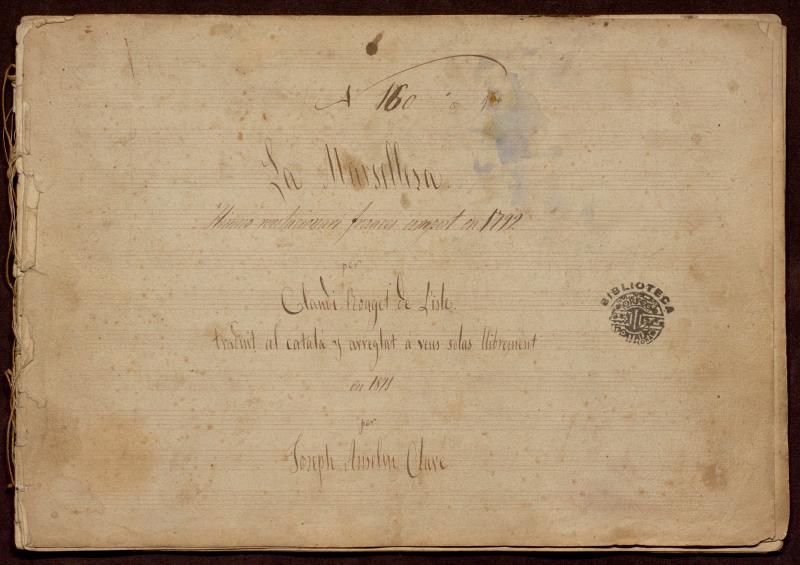 Nº 160
La Marsellesa
Himne revolucionari frances compost en 1792
per
Claudi Rouget de Lisle
traduit al catalá y arreglat á veus solas llibrement
en 1871
per
Joseph Anselm Clavé
BIBLIOTECA